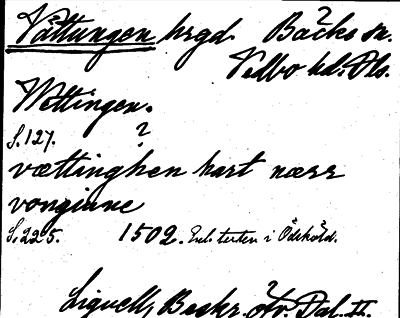 Vättungen hrgd. Bäcke sn.
Vedbo hd. Dls.
Wettingen.
S. 127. ?
vættinghen hart nærr
vonginne
S. 225. 1502. Enl. texten i Ödsköld.
Lignell, Beskr. öv. Dal. II.